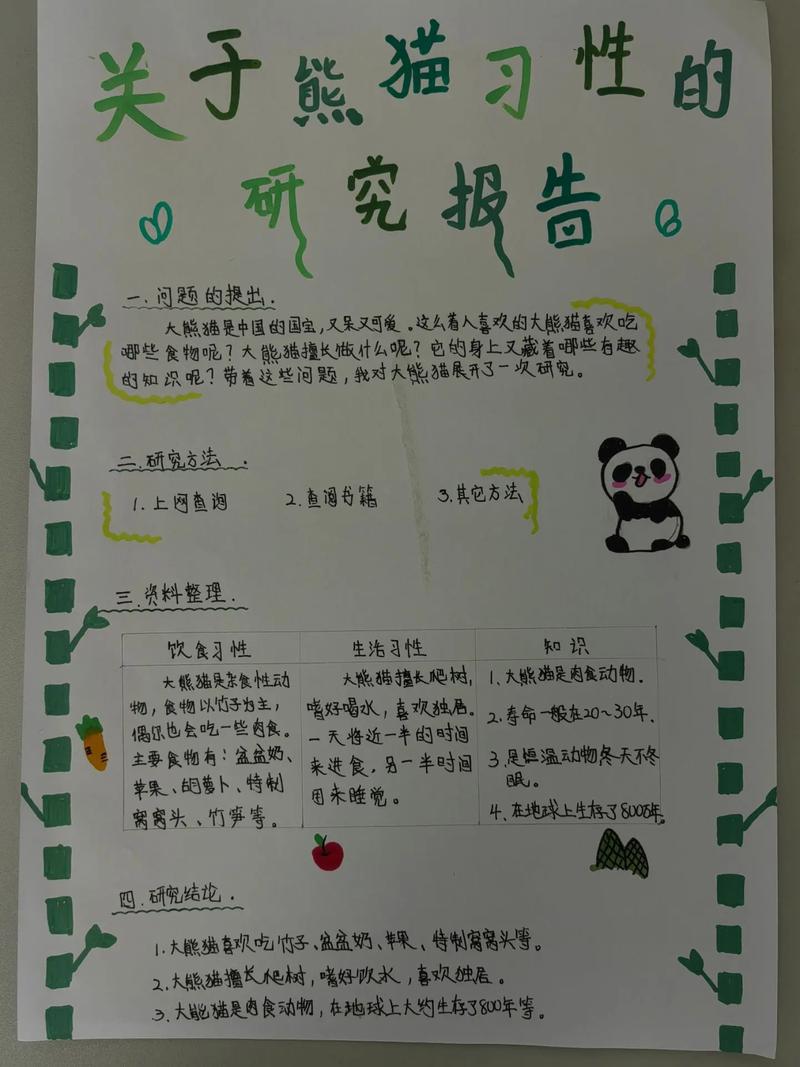 关于熊猫习性的
研究报告
一.问题的提出.
大熊猫是中国的国宝,又呆又可爱。这么着人喜欢的大熊猫喜欢吃
哪些食物呢?大熊猫擅长做什么呢?它的身上又藏着哪些有趣
的知识呢?带着这些问题,我对大熊猫展开了一次研究。
二.研究方法.
1.上网查询 2.查阅书籍 3.其它方法
三.资料整理.
饮食习性
大熊猫是杂食性动
物,食物以竹子为主,
偶尔也会吃一些肉食。
主要食物有:盆盆奶、
苹果、胡萝卜、特制
窝窝头、竹笋等。
生活习性
大熊猫擅长爬树,
嗜好喝水,喜欢独居。
一天将近一半的时间
来进食,另一半时间
用来睡觉。
知识
1、大熊猫是肉食动物.
2.寿命一般在20~30年.
3.是恒温动物冬天不冬
眠。
4、在地球上生存了800万年.
四.研究结论.
1.大熊猫喜欢吃竹子、盆盆奶、苹果、特制窝窝头等。
2.大熊猫擅长爬树,嗜好饮水,喜欢独居。
3.大能猫是肉食动物,在地球上大约生存了800年等。